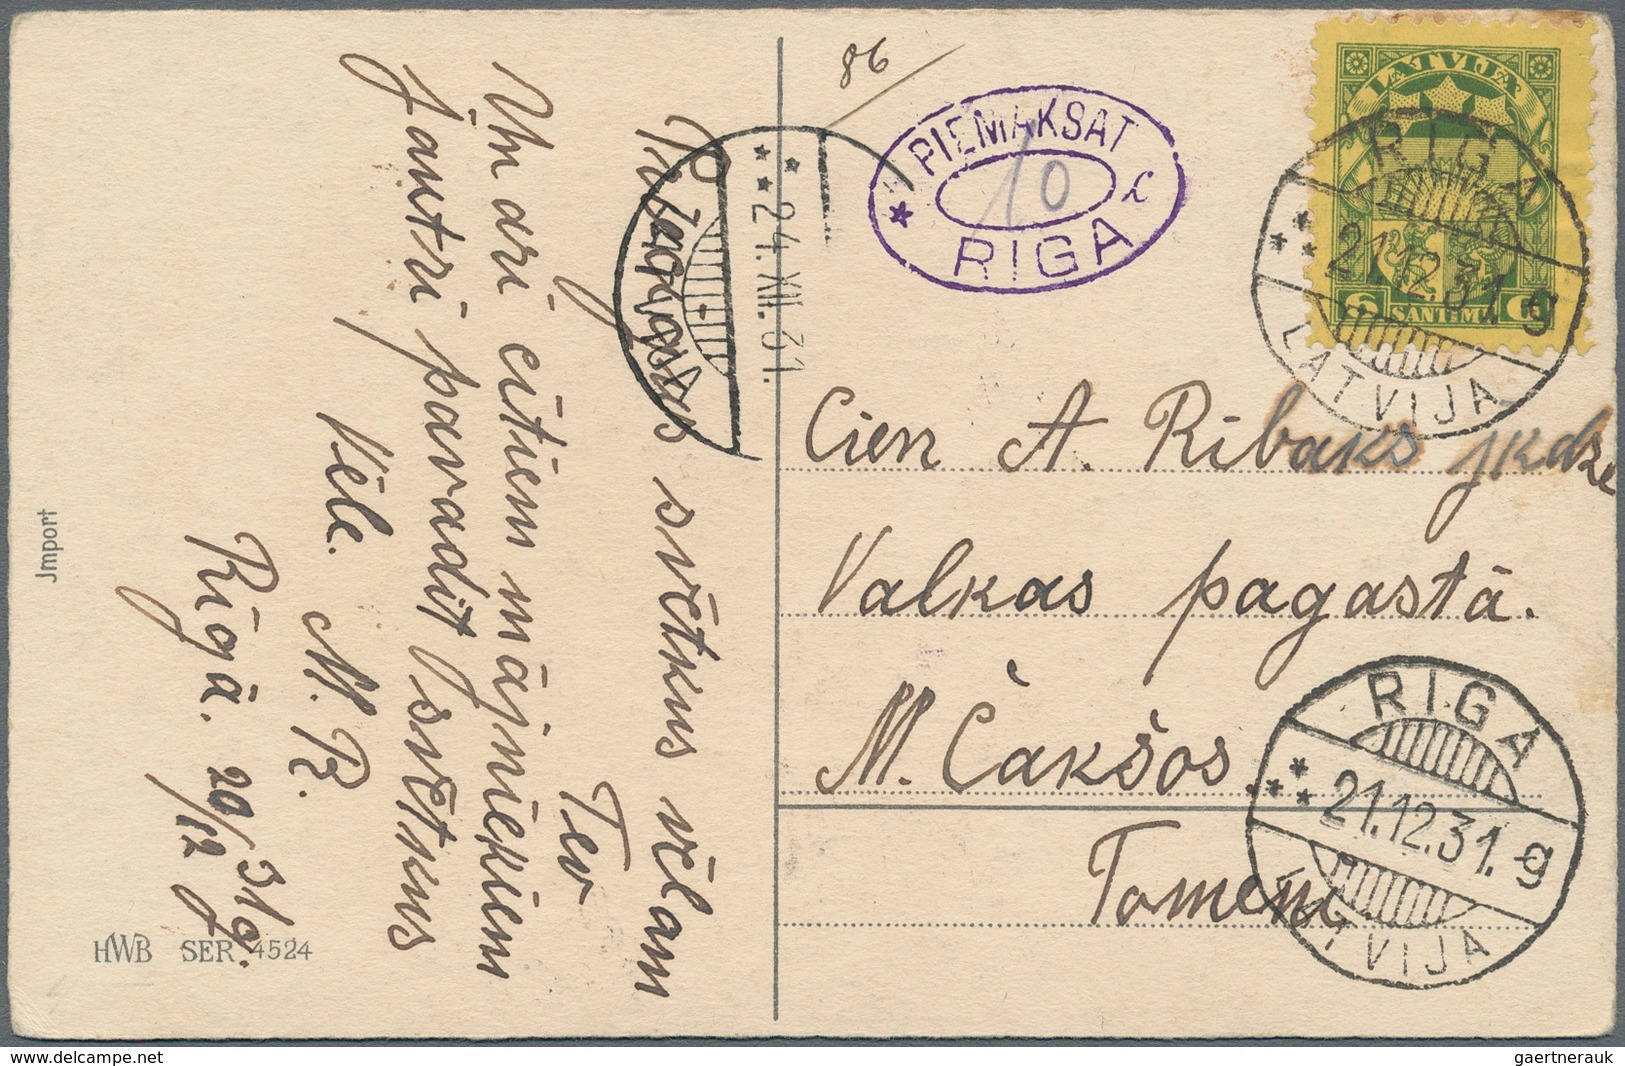 86
PIEMAKSAT
10
RIGA
LATVIJA
6 SANTIMI 6
RIGA
21.12.31. g
LATVIJA
24.XII.31.
LATVIJA
Cien A. Ribaks jkdze
Valkas pagastā.
M. Čakšos.
Tomēni
RIGA
21.12.31. g
LATVIJA
svētkus vēlam
Tev
Un arī citiem mājniekiem
jautri pavadīt svētkus
Vēle.
M. R.
Rīgā. 20/12 31 g.
Jmport
HWB SER 4524
delcampe.net
gaertnerauk